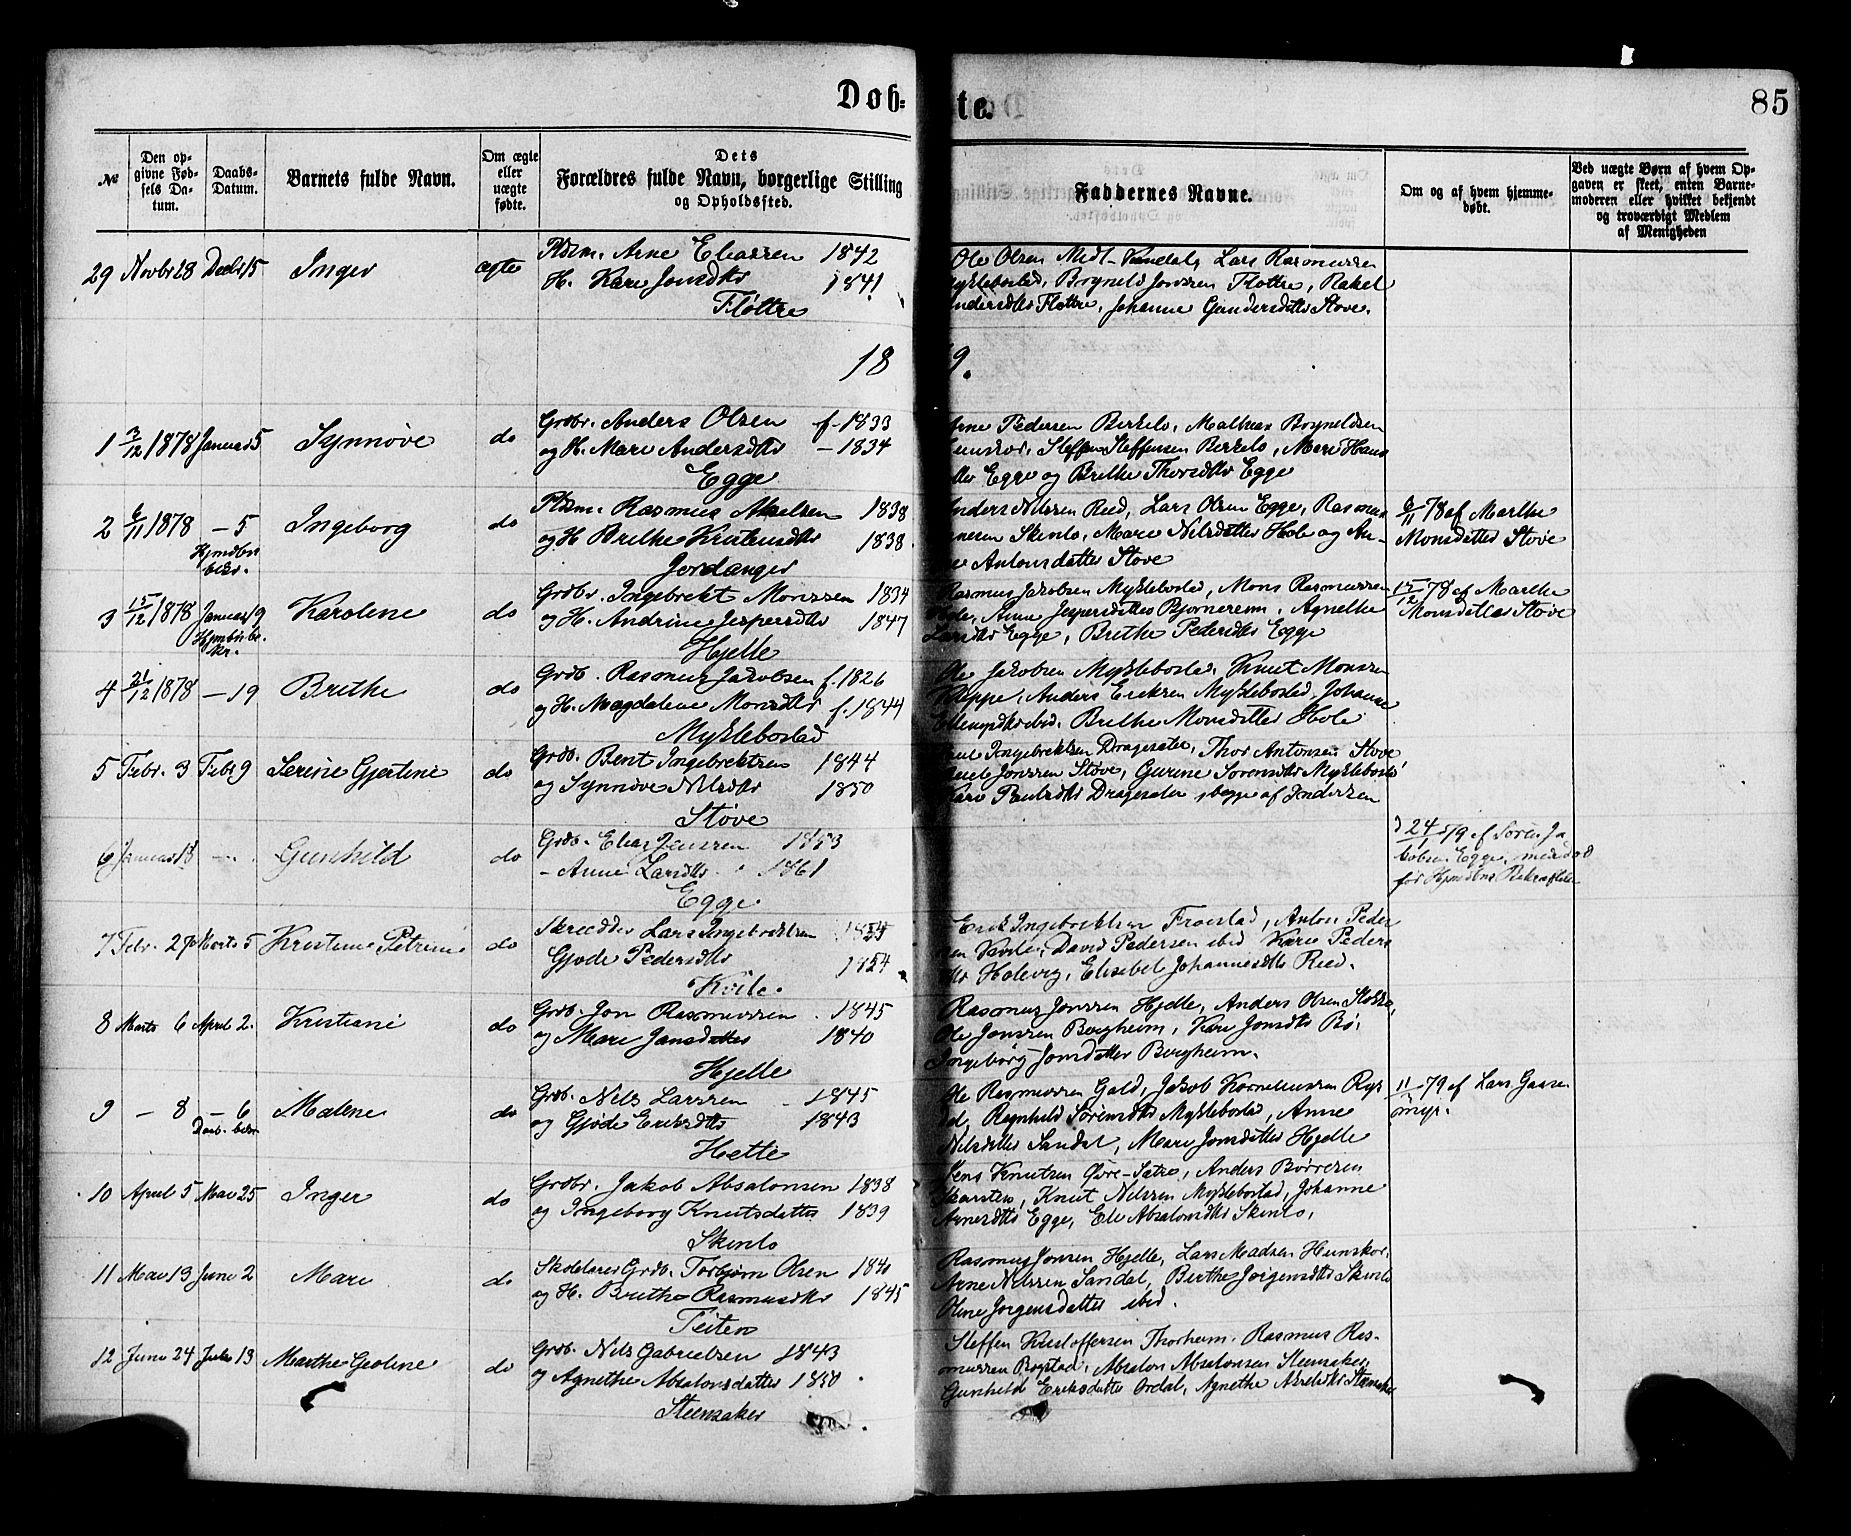 Døb-
te.
85
№
Den op-
givne Fød-
sels Da-
tum.
Daabs-
Datum.
Barnets fulde Navn.
Om ægte
eller
uægte
fødte.
Dets
Forældres fulde Navn, borgerlige Stilling
og Opholdssted.
Faddernes Navne.
Om og af hvem hjemme-
døbt.
Ved uægte Børn af hvem Op-
gaven er skeet, enten Barne-
moderen eller hvilket bekjendt
og troværdigt Medlem
af Menigheden
29 Novbr 28 Decbr 15 Inger ægte Pldsm. Arne Eliassen 1842
H. Kari Jonsdtr 1841
Fløttre
Ole Olsen Lars Rasmussen
Myklebostad, Bogneld Jonssen Fløttre, Rakel
Andersdtr Fløttre, Johanne Gundersdatter Støve.
18 79.
1 3/12 1878 Januar 5 Synnøve do Grdbr. Anders Olsen f. 1833
og H. Mari Andersdtr - 1834
Egge
Arne Pedersen Birkelo, Mathias Bogneldsen
Hunskor, Steffen Steffensen Birkelo, Mari Hans
dtr Egge og Brithe Thorsdtr Egge
2 6/11 1878 - 5 Ingeborg do Pldsm. Rasmus Akselsen 1838
Hjmdbs
bekr.
og H. Brithe Kristensdtr 1838
Jordanger
Anders Nilssen Reed, Lars Olsen Egge, Rasmus
Skinlo, Mari Nilsdatter Hole og An-
ne Antonsdatter Støve
6/11 78 af Marthe
Monsdatter Støve
3 15/12 1878 Januar 19 Karolene do Grdbr. Ingebrekt Monssen 1834
Hjmdøbs be-
kr.
og H. Andrine Jespersdtr 1847
Hjelle
Rasmus Jakobsen Myklebostad, Mons Rasmussen
Hole, Anne Jespersdatter Bjørnereim, Agnethe
Larsdtr Egge, Brithe Pedersdtr Egge
15/12 78 af Marthe
Monsdatter Støve
4 21/12 1878 - 19 Brithe do Grdb. Rasmus Jakobsen f. 1826
og H. Magdalene Monsdtr f. 1844
Myklebostad
Ole Jakobsen Myklebostad, Knut Monssen
Anders Eriksen Myklebostad, Johanne
ibid. Brithe Monsdatter Hole
5 Febr. 3 Febr 9 Serine Gjertine do Grdb. Bent Ingebrektsen 1844
og Synnøve Nilsdtr 1850
Støve
Ingebrektsen Dragesæter, Thor Antonsen Støve
Jonssen Støve, Gurine Sørensdtr Myklebostad
Kari Paulsdtr Dragesæter, begge af Indersen
6 Januar 18 - Gunhild do Grdb. Elias Jenssen 1853
- Anne Larsdtr " 1861
Egge
24/1 79 af Søren Ja
kobsen Egge, men død
før Hjmdbns Bekræftelse
7 Febr. 27 Marts 5 Kristine Petrine do Skrædder Lars Ingebrektsen
Gjøde Pedersdtr 1854
Kvile.
Erik Ingebrektsen Froestad, Anton Peder
sen Kvile, David Pedersen ibid Kari Peders
dtr Holevig, Elisabet Johannesdtr Reed.
8 Marts 6 April 2. Kristiane do Grdb. Jon Rasmussen 1845
og Mari Jansdatter 1840
Hjelle
Rasmus Jonssen Hjelle, Anders Olsen
Ole Jonssen Bergheim, Kari Jonsdtr Bø,
Ingeborg Jonsdatter Bergheim.
9 - 8 - 6 Malene do Grdb. Nils Larssen - 1845
Daab. bekr
og Gjøde Eriksdtr 1843
Hette
Ole Rasmussen Gald, Jakob Korneliussen Ryg
Ragnhild Sørensdtr Myklebostad, Anne
Nilsdatter Sandal, Mari Jonsdatter Hjelle
79 af Lars Gaase
myr.
10 April 5 Mai 25 Inger do Grdbr. Jakob Absalonsen 1838
og Ingeborg Knutsdatter 1839
Skinlo
Jens Knutsen Øvre-Sætre, Anders Børresen
Skarsten, Knut Nilssen Myklebostad, Johanne
Arnesdtr Egge, Eli Absalonsdtr Skinlo,
11 Mai 13 Juni 2 Mari do Skolelærer Grdb. Torbjørn Olsen 1840
og H. Brithe Rasmusdtr 1845
Teiten
Rasmus Jonsen Hjelle, Lars Madsen Hunskor,
Arne Nilssen Sandal, Berthe Jørgensdtr Skinlo
Oline Jørgensdatter ibid.
12 Juni 24 Juli 13 Marthe Geoline do Grdb. Nils Gabrielsen f 1843
og Agnethe Absalonsdatter 1850
Steensaker
Steffen Kristoffersen Thorheim, Rasmus Ras-
mussen Bogstad, Absalon Absalonsen Steensaker,
Gunhild Eriksdatter Ordal, Agnethe Nilsdtr Steensaker